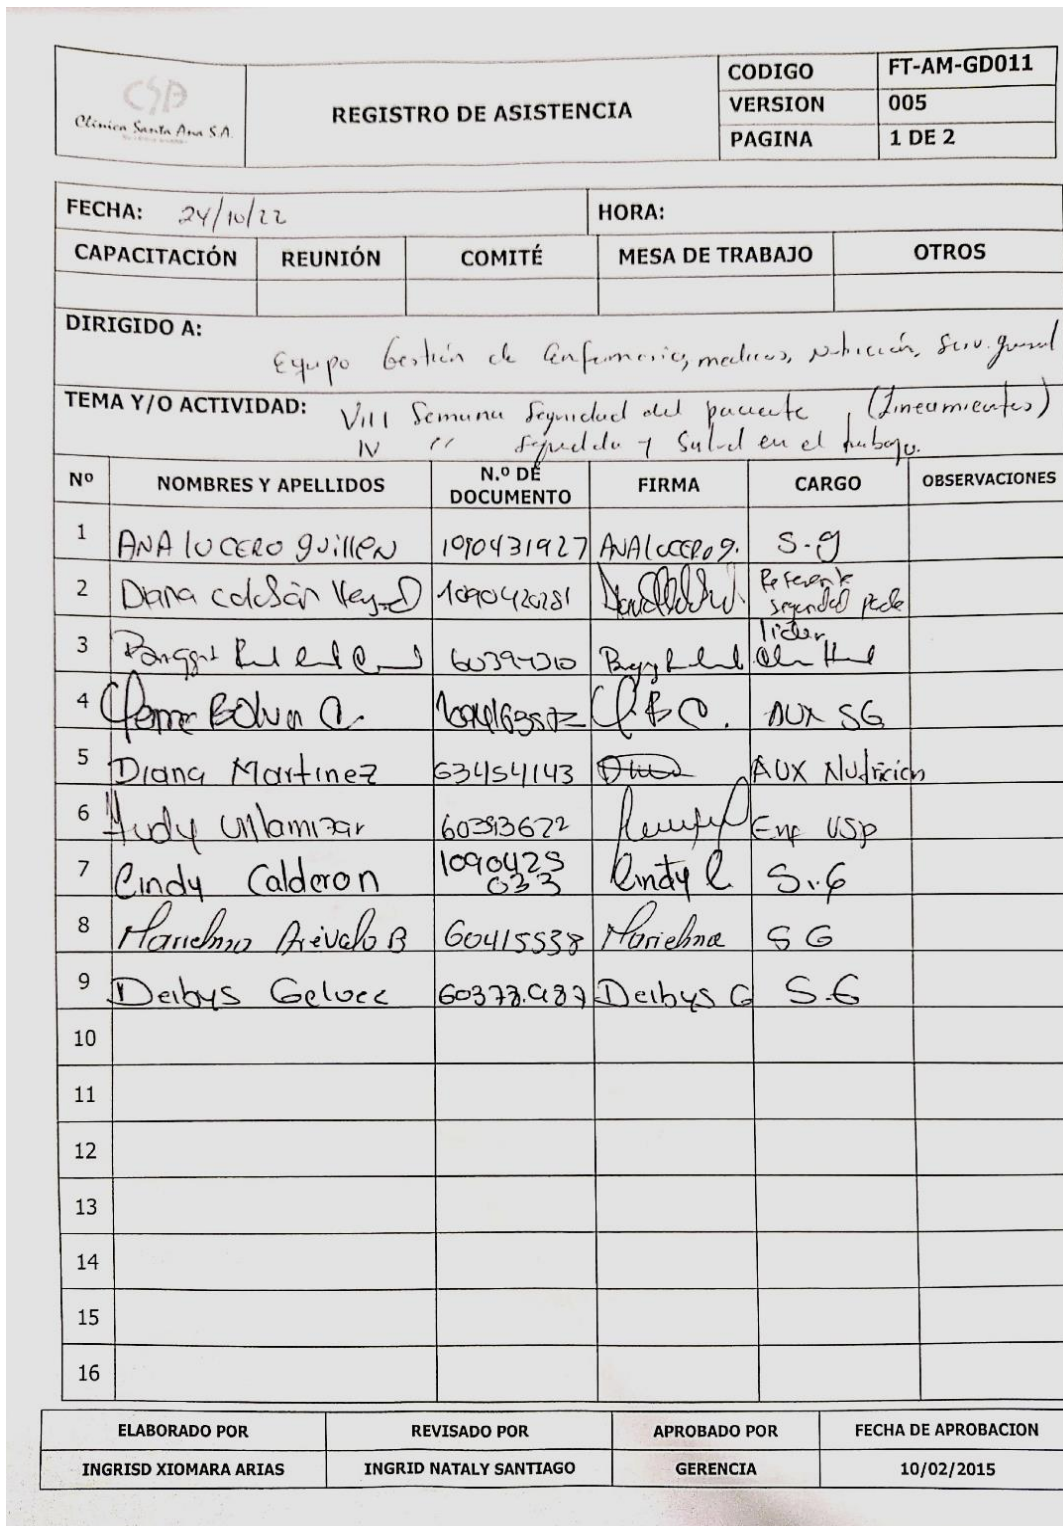 CSA
Clínica Santa Ana S.A.
REGISTRO DE ASISTENCIA
CODIGO FT-AM-GD011
VERSION 005
PAGINA 1 DE 2
FECHA: 24/10/22 HORA:
CAPACITACIÓN REUNIÓN COMITÉ MESA DE TRABAJO OTROS
DIRIGIDO A:
Equipo Gestión de Enfermería, medicos, nutrición, Serv. general
TEMA Y/O ACTIVIDAD: VIII Semana Seguridad del paciente, (Lineamientos)
IV " Seguridad y Salud en el trabajo.
Nº NOMBRES Y APELLIDOS N.º DE DOCUMENTO FIRMA CARGO OBSERVACIONES
1 ANA LUCERO guillen 1090431927 ANA LUCERO g. S.g
2 Diana 1090420281 Referente seguridad
3 lider
4 Bolivar C. AUX SG
5 Diana Martinez 63454143 AUX Nutricion
6 Villamizar 60393622 Enf USP
7 Cindy Calderon 1090425033 Cindy C. S.G
8 Arévalo B 60415538 SG
9 Deibys 60378.987 Deibys G S.G
10
11
12
13
14
15
16
ELABORADO POR REVISADO POR APROBADO POR FECHA DE APROBACION
INGRISD XIOMARA ARIAS INGRID NATALY SANTIAGO GERENCIA 10/02/2015